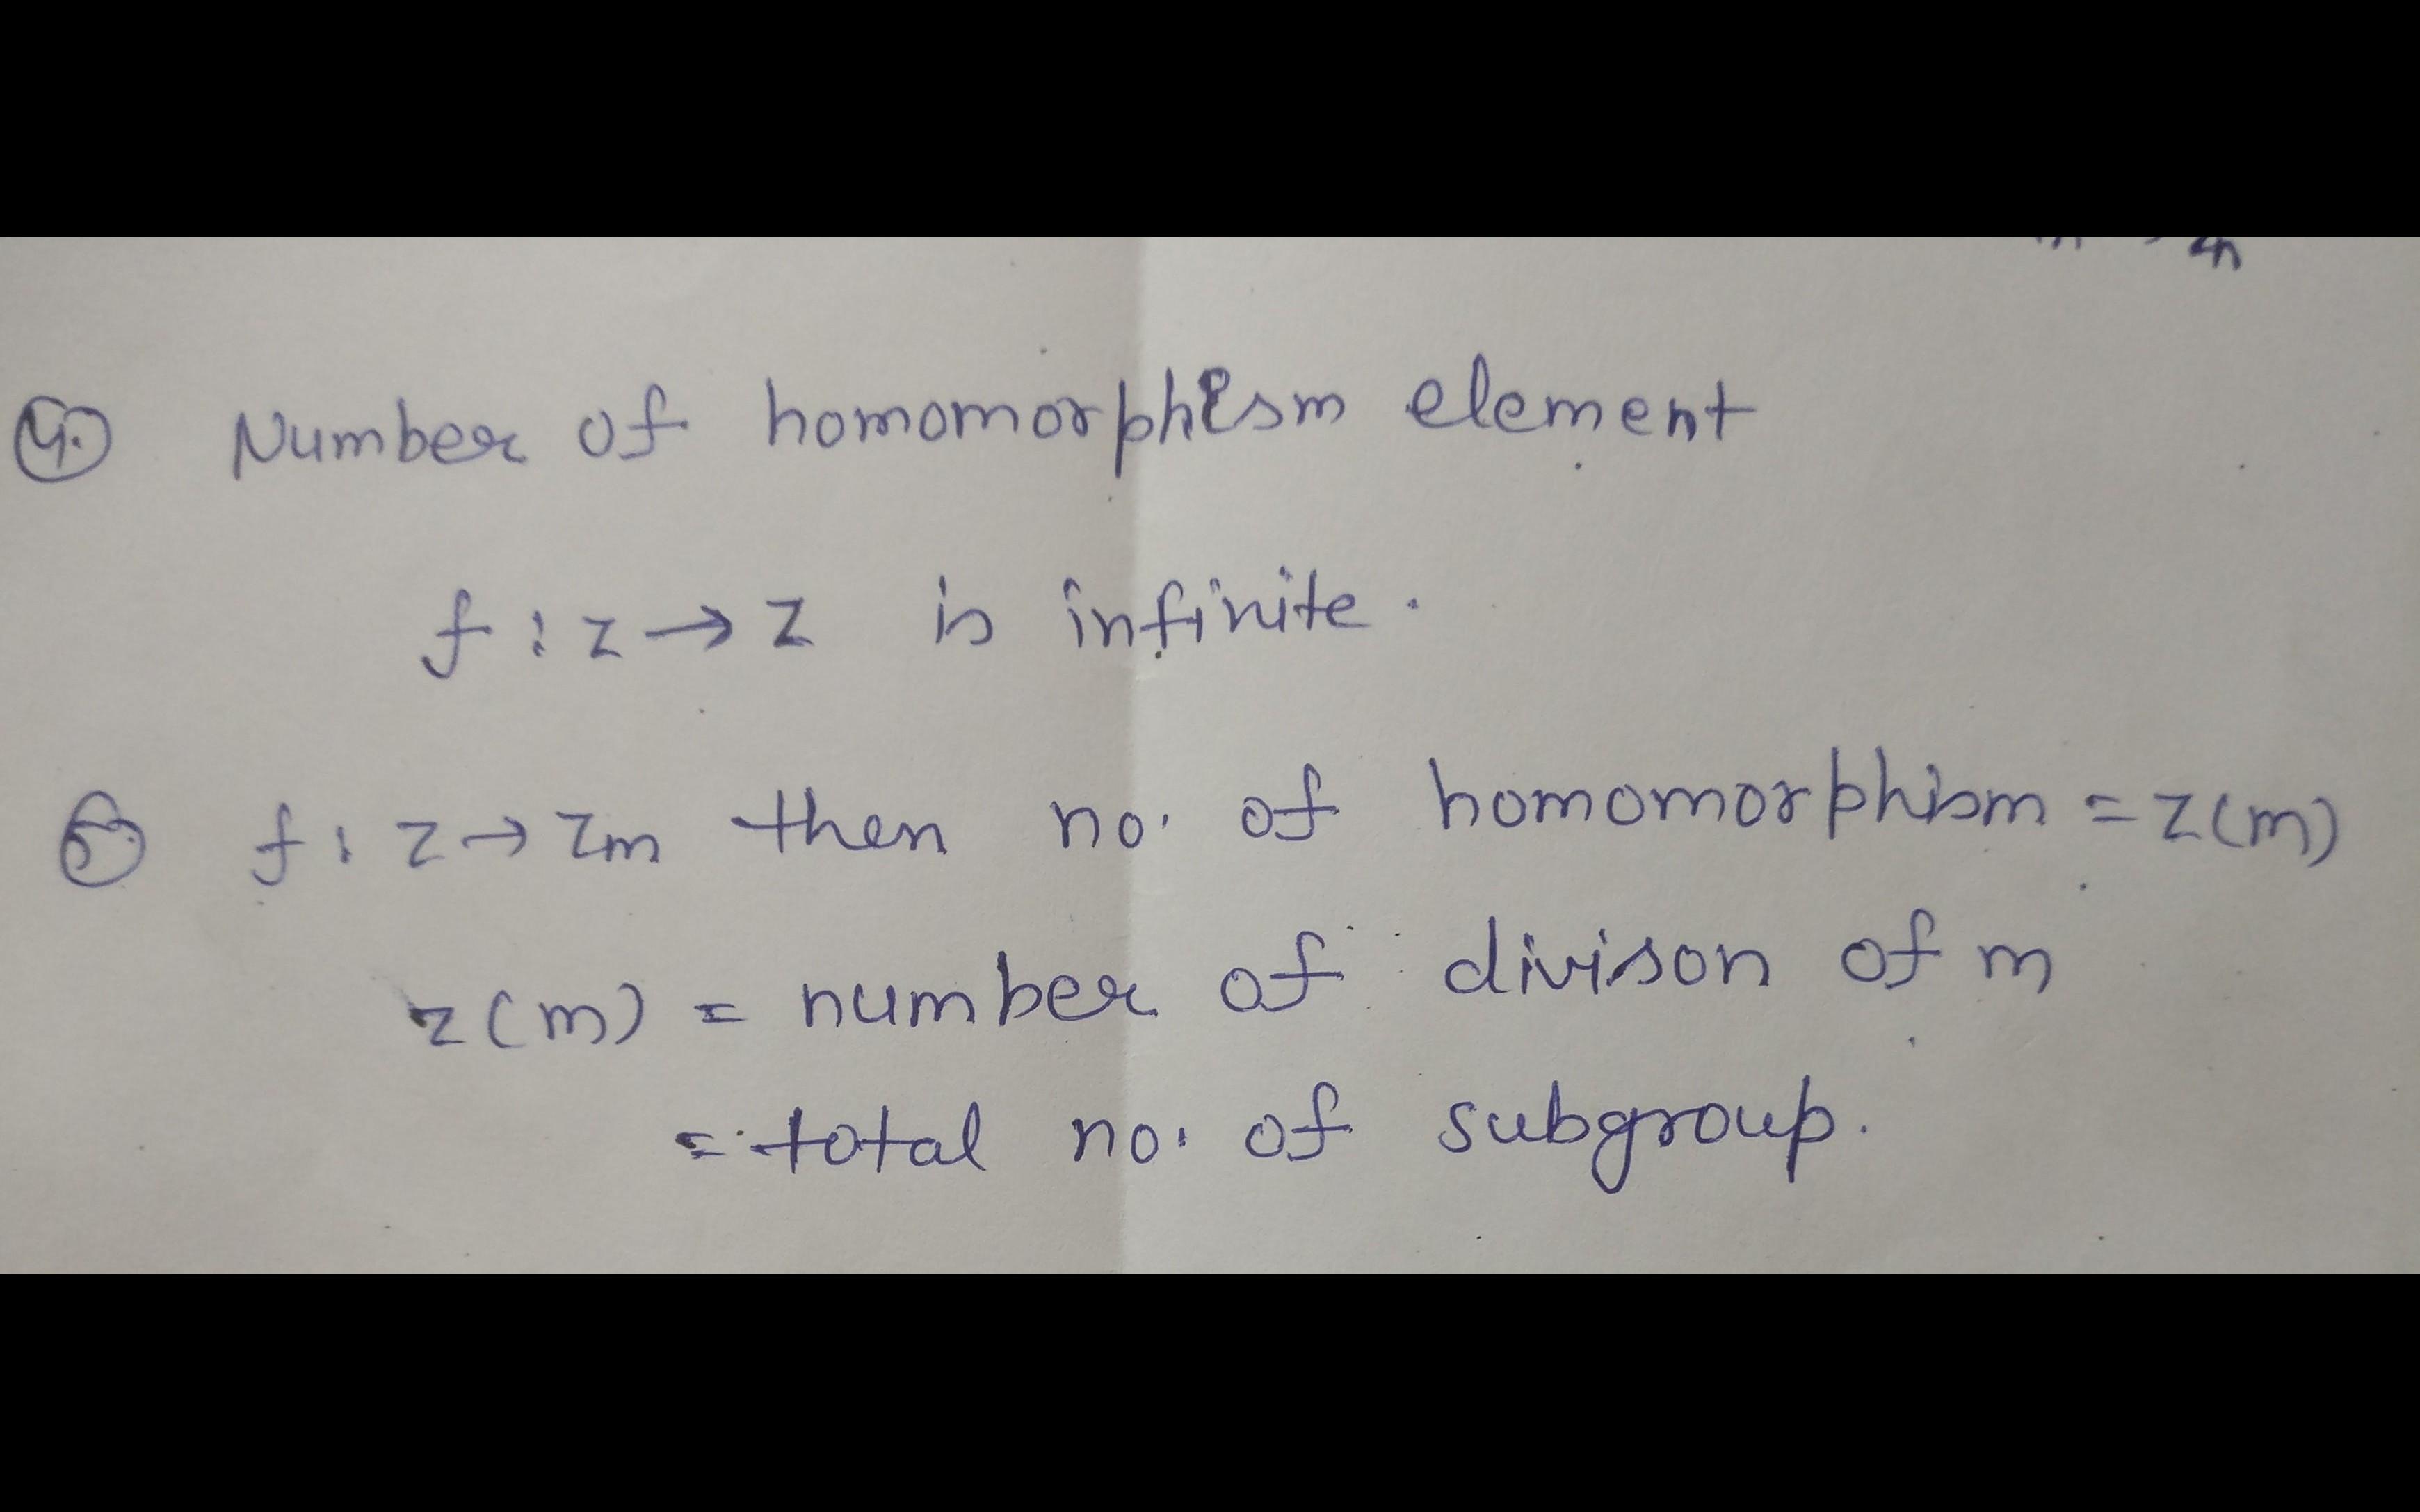 ④ Number of homomorphism element
f : z → z is infinite.
⑤ f : z → zm then no. of homomorphism = z(m)
z(m) = number of divison of m
= total no. of subgroup.